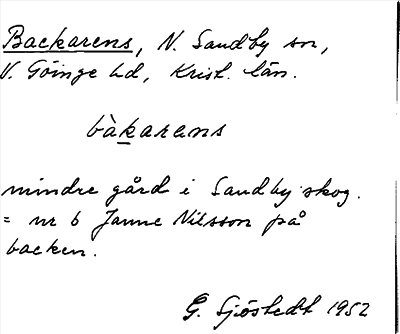 Backarens, N. Sandby sn,
V. Göinge hd, Krist. län.
bàkarens
mindre gård i Sandby skog.
= nr 6 Janne Nilsson på
backen.
G. Sjöstedt 1952